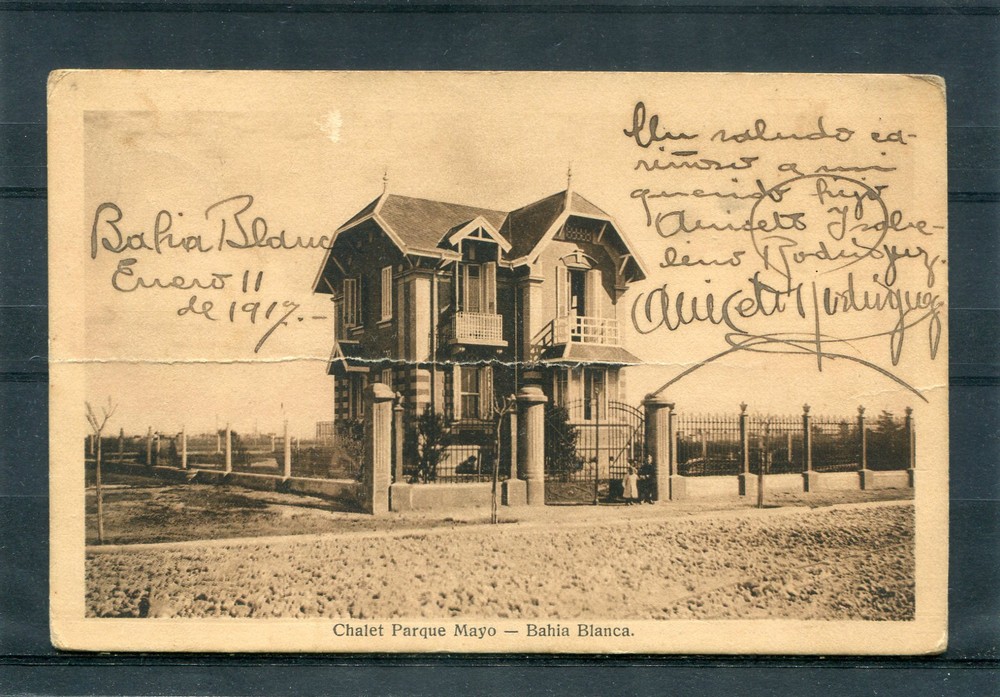 Bahia Blanca
Enero 11
de 1917.-
Un saludo ca-
riñoso a mi
querido hijo
Aniceto Isabe-
lino Rodriguez.
Aniceto Rodriguez
Chalet Parque Mayo — Bahia Blanca.